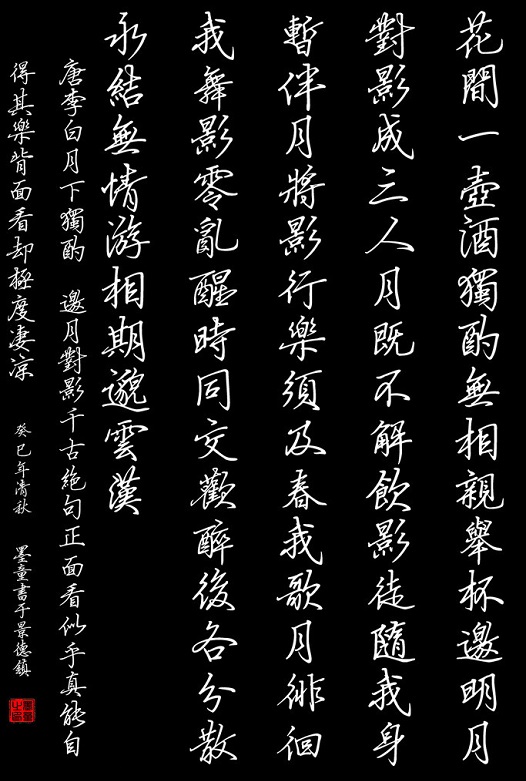 花間一壺酒獨酌無相親舉杯邀明月
對影成三人月既不解飲影徒隨我身
暫伴月將影行樂須及春我歌月徘徊
我舞影零亂醒時同交歡醉後各分散
永結無情游相期邈雲漢
唐李白月下獨酌 邀月對影千古絶句正面看似乎真能自
得其樂背面看却極度凄涼 癸巳年清秋 墨童書于景德鎮